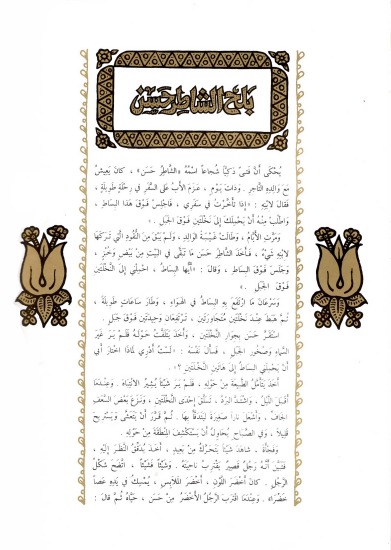 بلح الشاطر حسن
يُحْكَى أَنَّ فَتىً ذَكِيّاً شُجَاعاً اسْمُهُ «الشَّاطِرُ حَسَن» ، كَانَ يَعِيشُ
مَعَ وَالِدِهِ التَّاجِرِ . وَذَاتَ يَوْمٍ ، عَزَمَ الأَبُ عَلَى السَّفَرِ فِي رِحْلَةٍ طَوِيلَةٍ ،
فَقَالَ لِابْنِهِ : «إِذَا تَأَخَّرْتُ فِي سَفَرِي ، فَاجْلِسْ فَوْقَ هَذَا الْبِسَاطِ ،
وَاطْلُبْ مِنْهُ أَنْ يَحْمِلَكَ إِلَى نَخْلَتَيْنِ فَوْقَ الْجَبَلِ .»
وَمَرَّتِ الأَيَّامُ ، وَطَالَتْ غَيْبَةُ الْوَالِدِ، وَلَمْ يَبْقَ مِنَ النُّقُودِ الَّتِي تَرَكَهَا
لِابْنِهِ شَيْءٌ ، فَأَخَذَ الشَّاطِرُ حَسَن مَا تَبَقَّى فِي الْبَيْتِ مِنْ بَيْضٍ وَخُبْزٍ ،
وَجَلَسَ فَوْقَ الْبِسَاطِ ، وَقَالَ : «أَيُّهَا الْبِسَاطُ ، احْمِلْنِي إِلَى النَّخْلَتَيْنِ
فَوْقَ الْجَبَلِ .»
وَسَرْعَانَ مَا ارْتَفَعَ بِهِ الْبِسَاطُ فِي الْهَوَاءِ ، وَطَارَ سَاعَاتٍ طَوِيلَةً ،
ثُمَّ هَبَطَ عِنْدَ نَخْلَتَيْنِ مُتَجَاوِرَتَيْنِ ، تَرْتَفِعَانِ وَحِيدَتَيْنِ فَوْقَ جَبَلٍ .
اسْتَقَرَّ حَسَن بِجِوَارِ النَّخْلَتَيْنِ ، وَأَخَذَ يَتَلَفَّتُ حَوْلَهُ فَلَمْ يَرَ غَيْرَ
السَّمَاءِ وَصُخُورِ الْجَبَلِ ، فَسَأَلَ نَفْسَهُ : «لَسْتُ أَدْرِي لِمَاذَا اخْتَارَ أَبِي
أَنْ يَحْمِلَنِي الْبِسَاطُ إِلَى هَاتَيْنِ النَّخْلَتَيْنِ ؟» .
أَخَذَ يَتَأَمَّلُ الطَّبِيعَةَ مِنْ حَوْلِهِ ، فَلَمْ يَرَ شَيْئاً يُثِيرُ الانْتِبَاهَ . وَعِنْدَمَا
أَقْبَلَ اللَّيْلُ ، وَاشْتَدَّ الْبَرْدُ ، تَسَلَّقَ إِحْدَى النَّخْلَتَيْنِ ، وَنَزَعَ بَعْضَ السَّعَفِ
الْجَافِّ ، وَأَشْعَلَ نَاراً صَغِيرَةً لِيَتَدَفَّأَ بِهَا . ثُمَّ قَرَّرَ أَنْ يَتَعَشَّى وَيَسْتَرِيحَ
قَلِيلاً ، وَفِي الصَّبَاحِ يُحَاوِلُ أَنْ يَسْتَكْشِفَ الْمِنْطَقَةَ مِنْ حَوْلِهِ .
وَفَجْأَةً ، شَاهَدَ شَيْئاً يَتَحَرَّكُ مِنْ بَعِيدٍ . أَخَذَ يُدَقِّقُ النَّظَرَ إِلَيْهِ ،
فَتَبَيَّنَ أَنَّهُ رَجُلٌ قَصِيرٌ يَقْتَرِبُ نَاحِيَتَهُ . وَشَيْئاً فَشَيْئاً ، اتَّضَحَ شَكْلُ
الرَّجُلِ . كَانَ أَخْضَرَ اللَّوْنِ ، أَخْضَرَ الْمَلَابِسِ ، يُمْسِكُ فِي يَدِهِ عَصاً
خَضْرَاءَ . وَعِنْدَمَا اقْتَرَبَ الرَّجُلُ الأَخْضَرُ مِنْ حَسَن ، حَيَّاهُ ثُمَّ قَالَ :